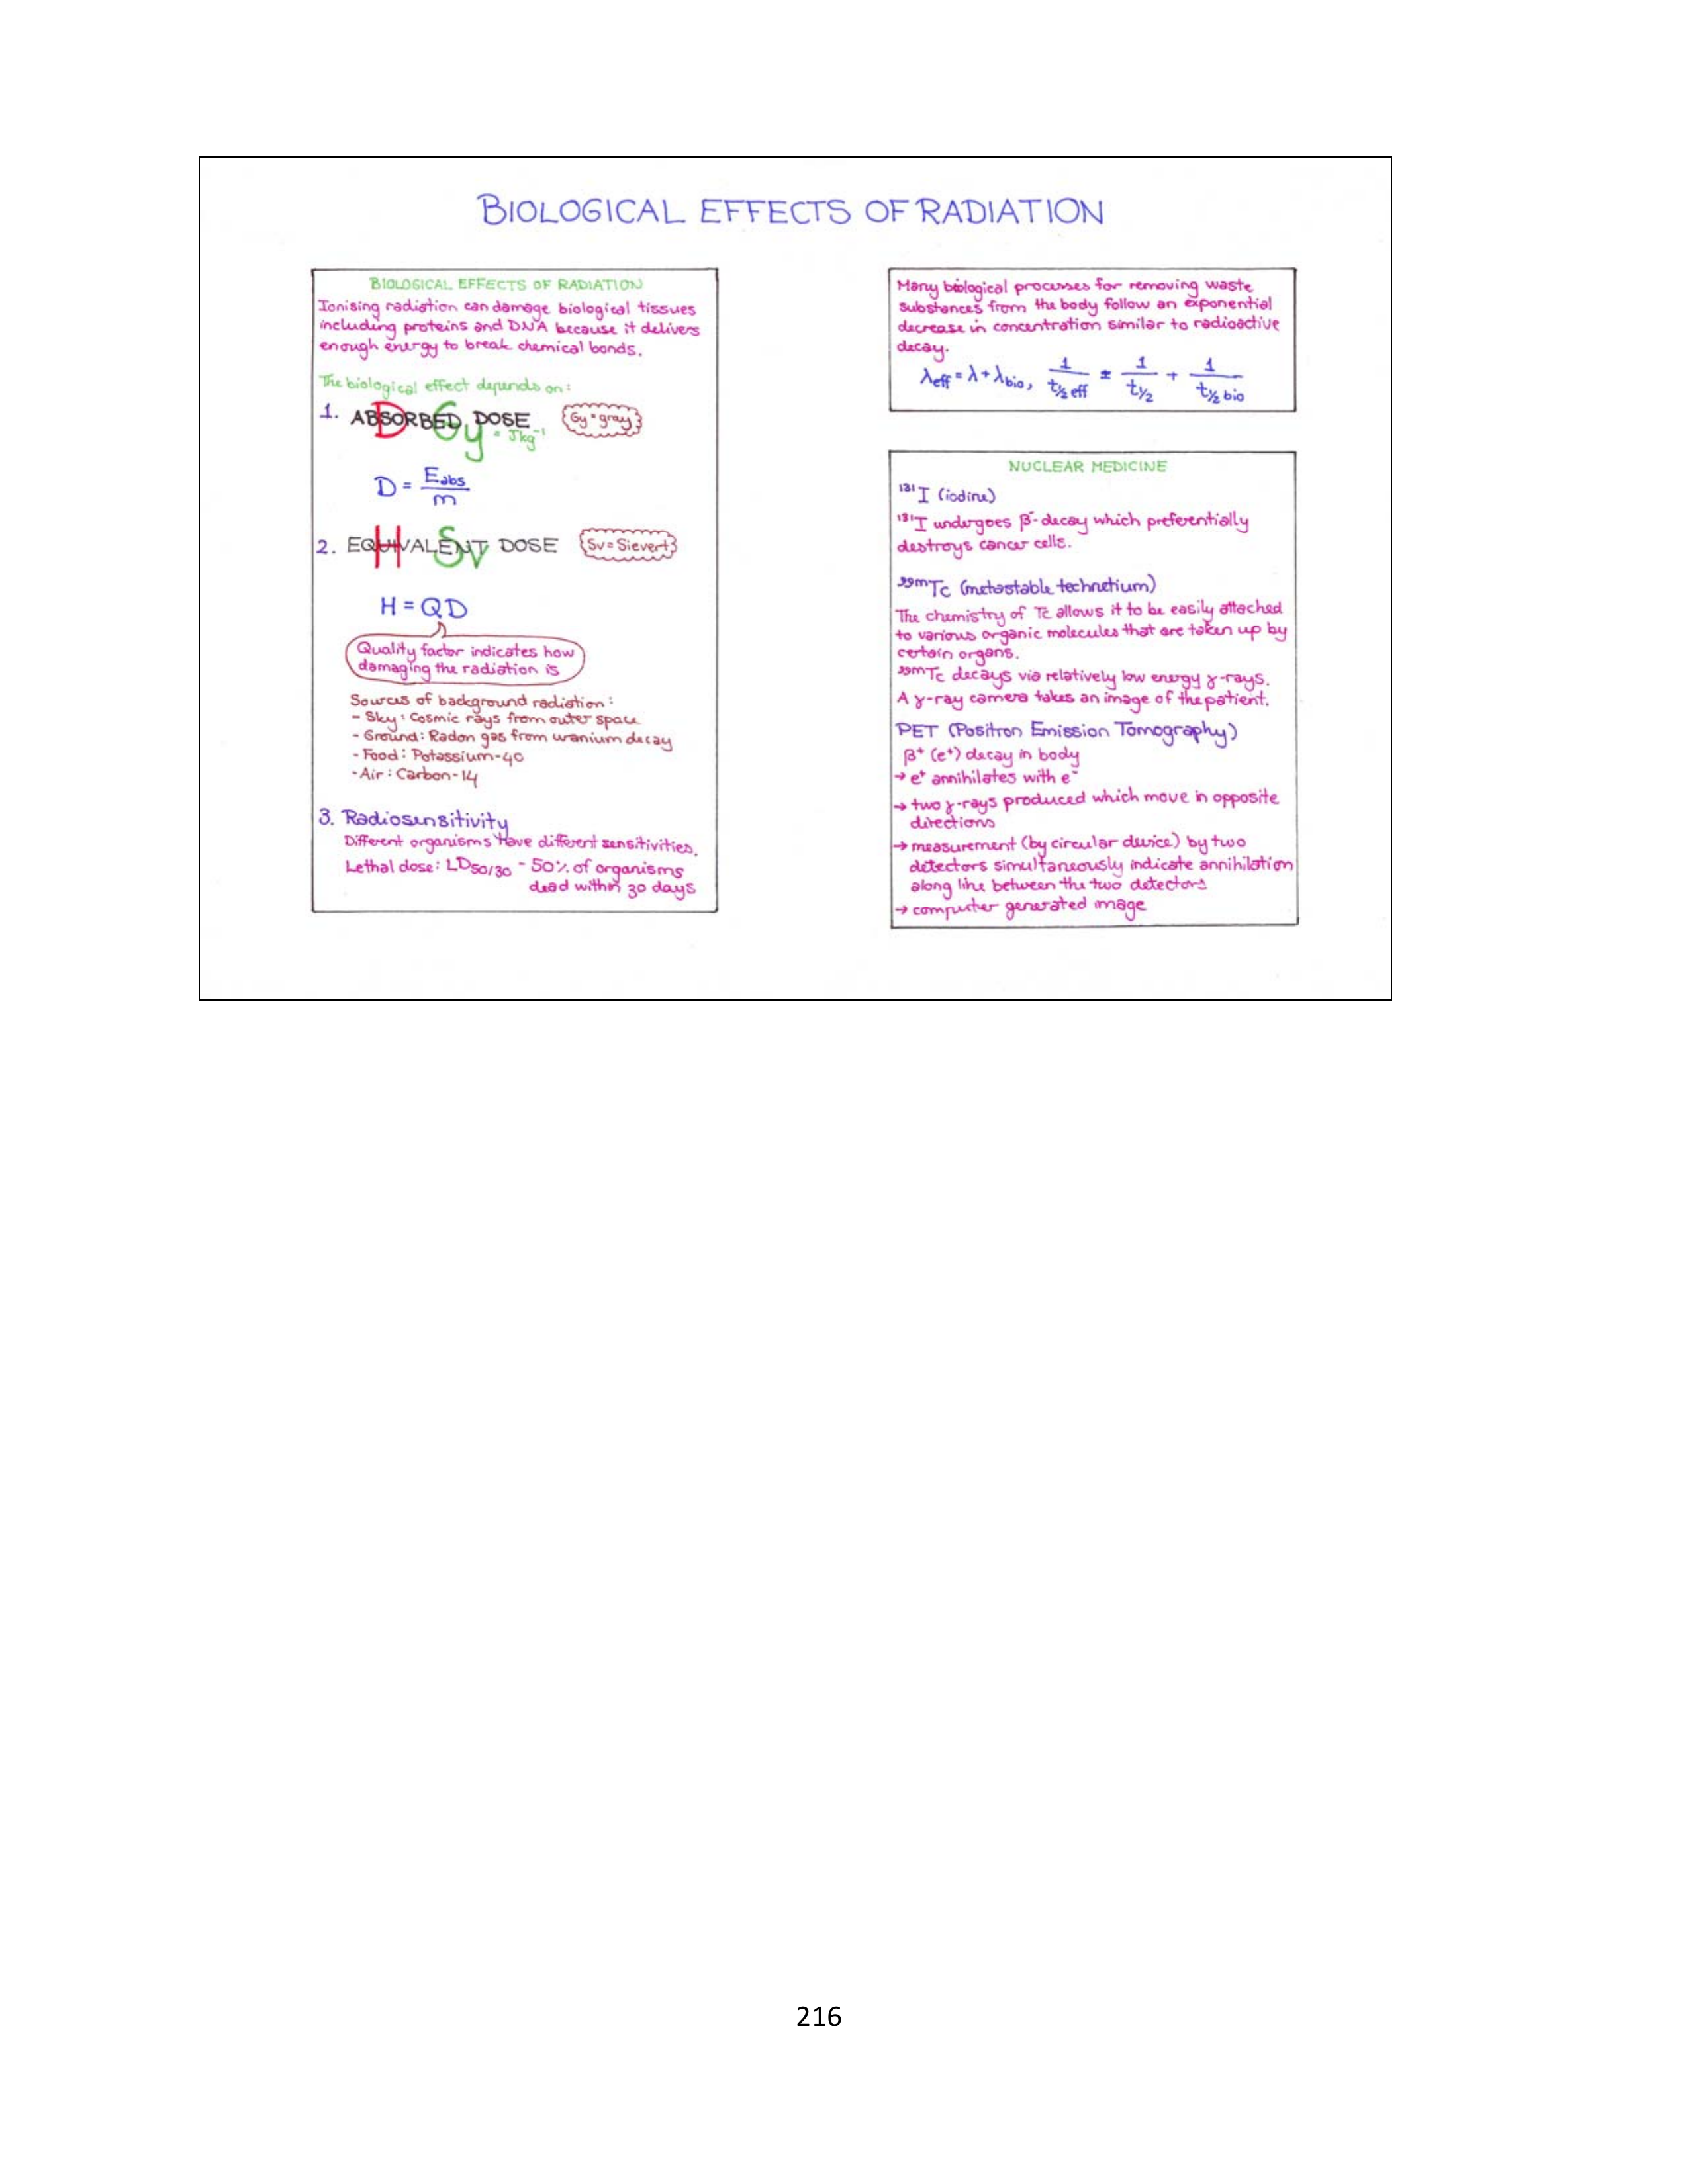 BIOLOGICAL EFFECTS OF RADIATION
BIOLOGICAL EFFECTS OF RADIATION
Ionising radiation can damage biological tissues
including proteins and DNA because it delivers
enough energy to break chemical bonds.
The biological effect depends on:
1. ABSORBED DOSE
D Gy = Jkg⁻¹
Gy = gray
D = Eabs/m
2. EQUIVALENT DOSE
H Sv
Sv = Sievert
H = QD
Quality factor indicates how
damaging the radiation is
Sources of background radiation:
- Sky: Cosmic rays from outer space
- Ground: Radon gas from uranium decay
- Food: Potassium-40
- Air: Carbon-14
3. Radiosensitivity
Different organisms have different sensitivities.
Lethal dose: LD50/30 - 50% of organisms
dead within 30 days
Many biological processes for removing waste
substances from the body follow an exponential
decrease in concentration similar to radioactive
decay.
λeff = λ + λbio, 1/t½ eff = 1/t½ + 1/t½ bio
NUCLEAR MEDICINE
¹³¹I (iodine)
¹³¹I undergoes β⁻-decay which preferentially
destroys cancer cells.
⁹⁹ᵐTc (metastable technetium)
The chemistry of Tc allows it to be easily attached
to various organic molecules that are taken up by
certain organs.
⁹⁹ᵐTc decays via relatively low energy γ-rays.
A γ-ray camera takes an image of the patient.
PET (Positron Emission Tomography)
β⁺ (e⁺) decay in body
→ e⁺ annihilates with e⁻
→ two γ-rays produced which move in opposite
directions
→ measurement (by circular device) by two
detectors simultaneously indicate annihilation
along line between the two detectors
→ computer generated image
216